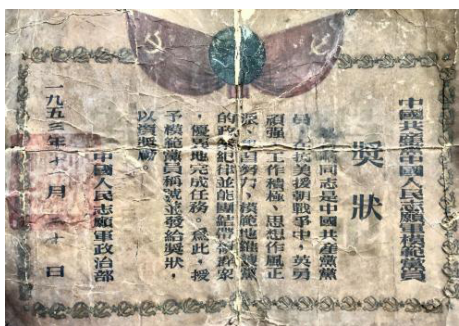 中國共產黨中國人民志願軍模範黨員
獎狀
同志是中國共產黨黨
員,在抗美援朝戰爭中,英勇
頑強,工作積極,思想作風正
派,學習努力,模範地維護黨
的政策紀律並能團結帶領羣眾
,優異地完成任務。為此,授
予模範黨員稱號並發給獎狀,
以資獎勵
中國人民志願軍政治部
一九五三年十月二十日